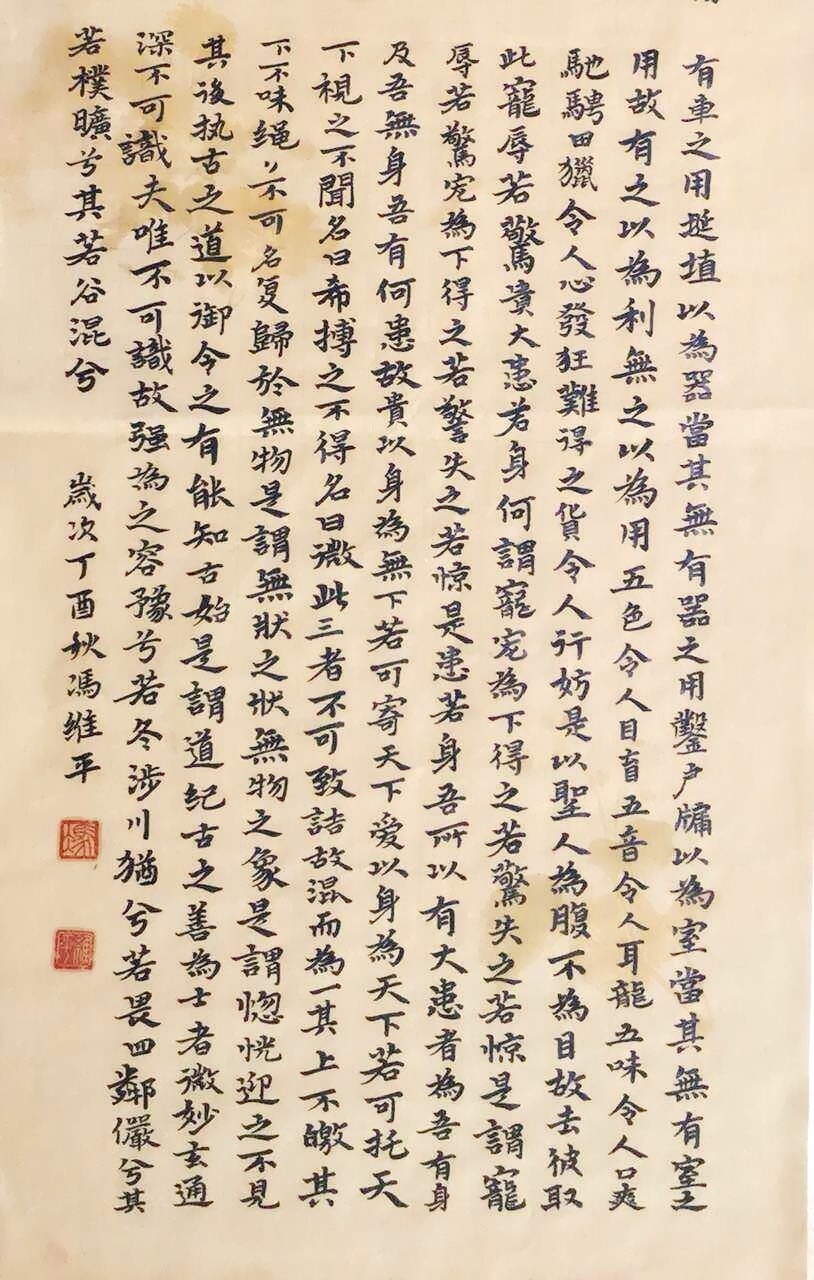 有車之用埏埴以為器當其無有器之用鑿户牖以為室當其無有室之
用故有之以為利無之以為用五色令人目盲五音令人耳龍五味令人口爽
馳騁田獵令人心發狂難得之貨令人行妨是以聖人為腹不為目故去彼取
此寵辱若驚貴大患若身何謂寵宠為下得之若驚失之若惊是謂寵
辱若驚宠為下得之若驚失之若惊是患若身吾所以有大患者為吾有身
及吾無身吾有何患故貴以身為無下若可寄天下爱以身為天下若可托天
下視之不聞名曰希搏之不得名曰微此三者不可致詰故混而為一其上不皦其
下不味绳〃不可名复歸於無物是謂無狀之状無物之象是謂惚恍迎之不見
其後执古之道以御今之有能知古始是謂道纪古之善為士者微妙玄通
深不可識夫唯不可識故强為之容豫兮若冬涉川猶兮若畏四鄰儼兮其
若樸曠兮其若谷混兮
歲次丁酉秋馮維平